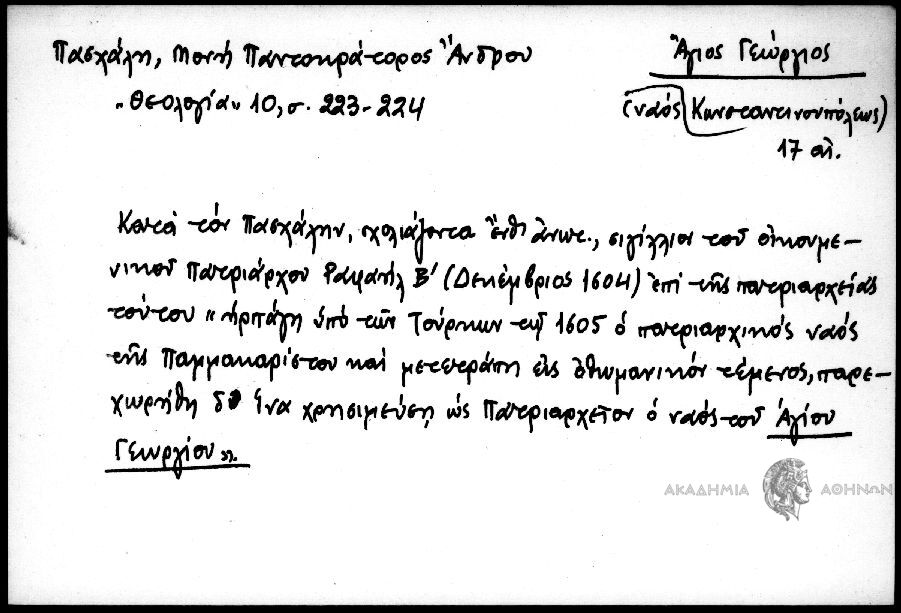 Πασχάλη, Μονή Παντοκράτορος Ἄνδρου
"Θεολογία" 10, σ. 223-224
Ἅγιος Γεώργιος
(ναός Κωνσταντινουπόλεως)
17 αἰ.
Κατά τόν Πασχάλην, σχολιάζοντα ἔνθ' ἀνωτ., σιγίλλιον τοῦ οἰκουμε-
νικοῦ Πατριάρχου Ραφαήλ Β' (Δεκέμβριος 1604) ἐπί τῆς πατριαρχείας
τούτου "ἡρπάγη ὑπό τῶν Τούρκων τῷ 1605 ὁ πατριαρχικός ναός
τῆς Παμμακαρίστου καί μετετράπη εἰς ὀθωμανικόν τέμενος, παρε-
χωρήθη δέ ἵνα χρησιμεύσῃ ὡς Πατριαρχεῖον ὁ ναός τοῦ Ἁγίου
Γεωργίου".
ΑΚΑΔΗΜΙΑ ΑΘΗΝΩΝ